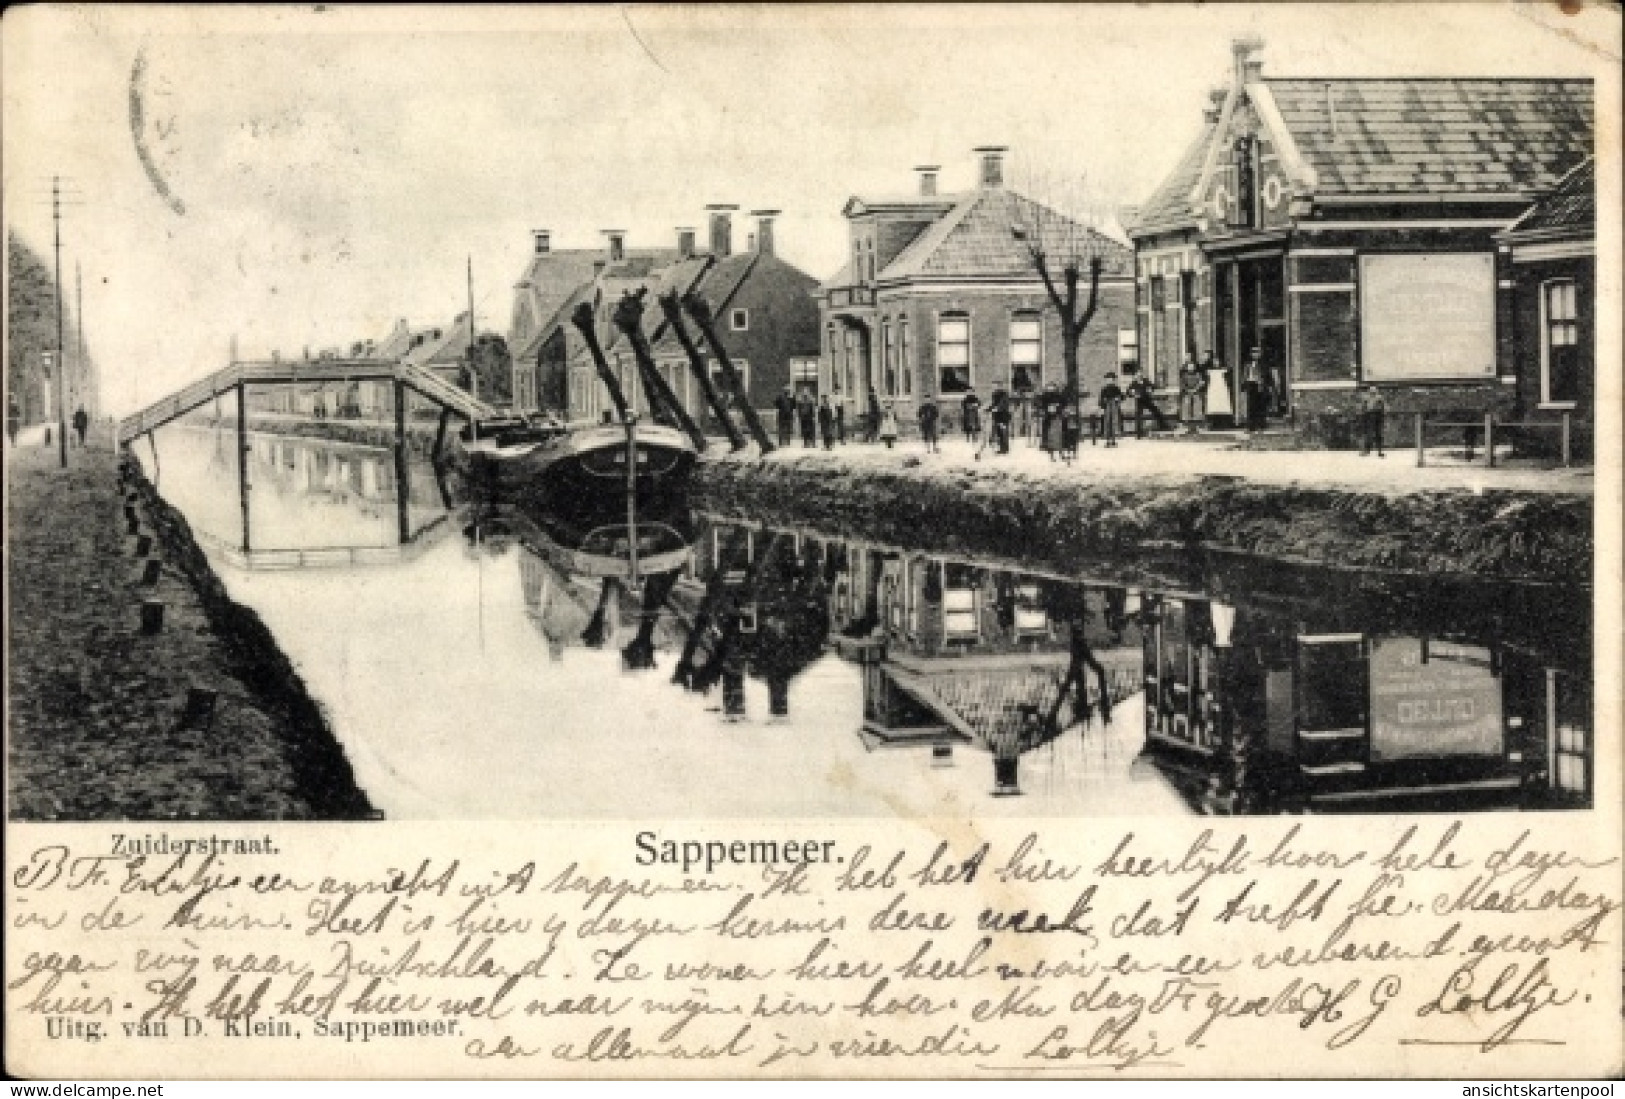 Zuiderstraat.
Sappemeer.
B Fr. een ansicht uit Sappemeer. Ik heb het hier heerlijk hoor hele dagen
in de tuin. Het is hier 4 dagen kermis deze week, dat treft hê. Maandag
gaan wij naar Duitschland. Ze wonen hier heel mooi en een verbazend groot
huis. Ik heb het hier wel naar mijn zin hoor. Nu dag Fr groet H G Loltje.
Uitg. van D. Klein, Sappemeer.
aan allemaal je vriendin Loltje.
delcampe.net
ansichtskartenpool